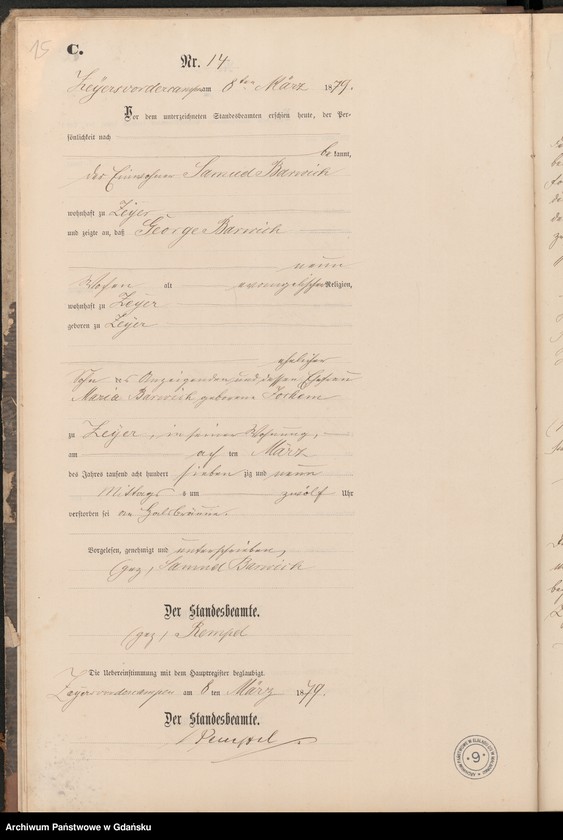 15
C.
Nr. 14
Zeyersvordercampen am 8ten März 1879.
Vor dem unterzeichneten Standesbeamten erschien heute, der Per-
sönlichkeit nach
be kannt,
der Einwohner Samuel Barwick
wohnhaft zu Zeyer
und zeigte an, daß George Barwick
neun
Wochen alt evangelischer Religion,
wohnhaft zu Zeyer
geboren zu Zeyer
ehelicher
Sohn des Anzeigenden und dessen Ehefrau
Maria Barwick geborene Jochem
zu Zeyer, in seiner Wohnung,
am acht ten März
des Jahres tausend acht hundert sieben zig und neun
Mittags um zwölf Uhr
verstorben sei an Halsbräune.
Vorgelesen, genehmigt und unterschrieben,
(gez) Samuel Barwick
Der Standesbeamte.
(gez) Rempel
Die Uebereinstimmung mit dem Hauptregister beglaubigt.
Zeyersvordercampen am 8 ten März 1879.
Der Standesbeamte.
Rempel
9
Archiwum Państwowe w Gdańsku